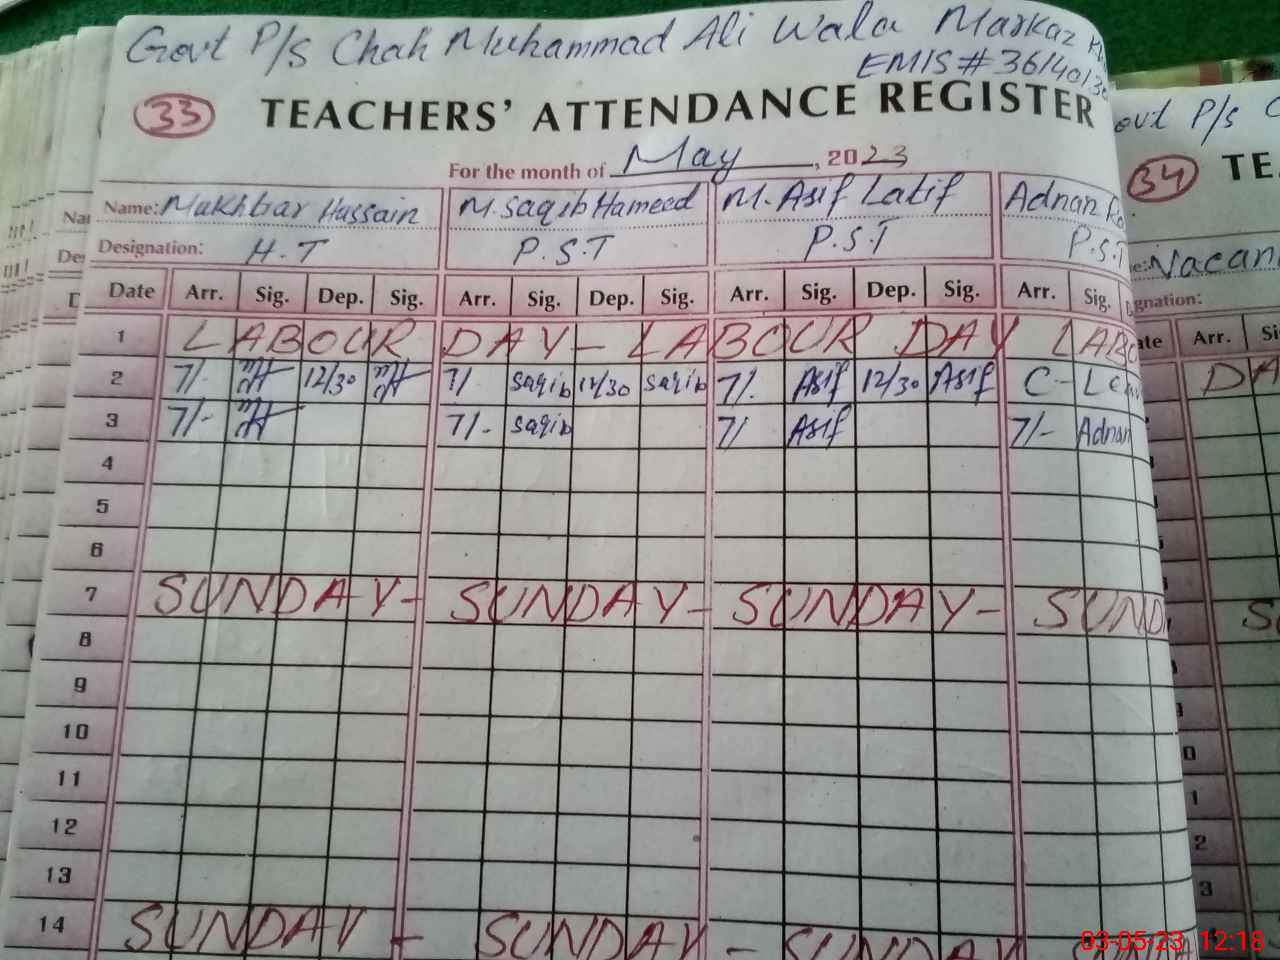 Govt P/S Chah Muhammad Ali Wala Markaz
EMIS # 3614013
33 TEACHERS' ATTENDANCE REGISTER
For the month of May, 2023
Name: Mukhbar Hussain M. Saqib Hameed M. Asif Latif Adnan
Designation: H.T P.S.T P.S.T P.S.T
Date Arr. Sig. Dep. Sig. Arr. Sig. Dep. Sig. Arr. Sig. Dep. Sig. Arr. Sig.
1 LABOUR DAY - LABOUR DAY LABO
2 7/- 12/30 7/ Saqib 12/30 Saqib 7/. Asif 12/30 Asif C-
3 7/- 7/- Saqib 7/ Asif 7/- Adnan
4
5
6
7 SUNDAY - SUNDAY - SUNDAY - SUND
8
9
10
11
12
13
14 SUNDAY - SUNDAY - SUNDAY
ovt P/S
34 TE
Vacan
gnation:
ate Arr. Si
DA
03-05-23 12:18